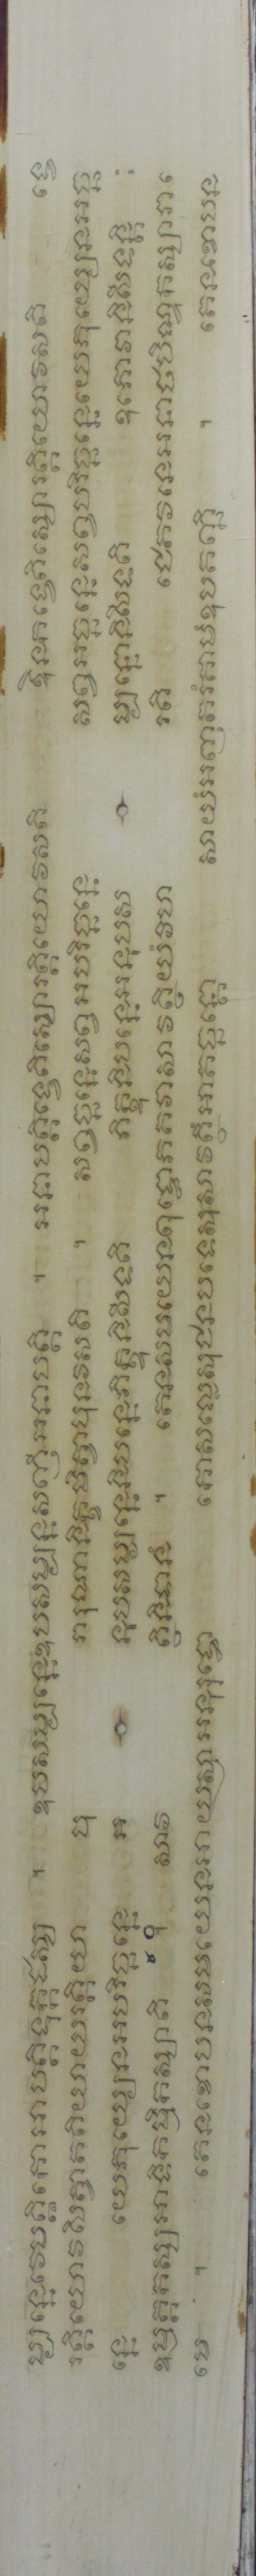 ម្បន្នេវេបត្តិកោអាបត្តិទុក្កដស្ស ។ ឧបសម្បន្នេឧបសម្បន្នសញីអនាបត្តិ ។ អនាបត្តិទ្វេតិស្សោរត្តិយោវសតិ ឩនកទ្វេតិស្សោរត្តិយោវសតិ ទ្វេ
រត្តិយោវសិត្វាតតិយាយរត្តិយា បុ រារុណានិក្ខមិត្វាបុនវសតិ ។ សព្វច្ឆន្នេសព្វអបរិច្ឆន្នេ សព្វអច្ឆន្នេសព្វបរិច្ឆន្នេយេភុយ្យេនអច្ឆ
ន្នេ យេភុយ្យេនអបរិច្ឆន្នេ អ នុបសម្បន្នេនិបន្នេភិក្ខុនិសីទតិ ភិក្ខុនិបន្នេអនុបស ម្បន្នោនិសីទតិ ឧភោវានិសីទន្តិ
ឧម្មត្តកស្សអាទិកម្មិកស្សាតិ សាវ ត្ថិនិទានំ ។ តេនសមយេនពុទ្ធោភគវាសាវត្ថិយំវិហ រតិ ជេតវនេអនាថបិណ្ឌិកស្សារា
មេ ។ តេនខោបនសមយេនអាយស្មាអនុរុទ្ធោ កោសលេសុជនបទេសុសាវត្ថឹអាគច្ឆន្តោ សាយំអញតរំគាមំឧបគញ្ឆិ ។ តេនខោបន